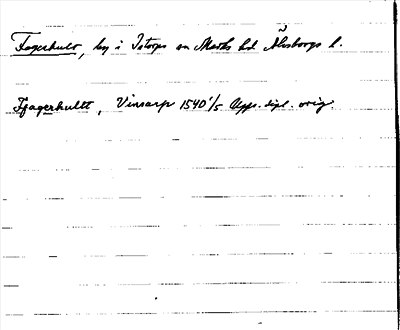 Fagerhult, by i Istorps sn Marks hd Älvsborgs l.
Ffagerhultt, Vinsarp 1540 1/5 Upps. dipl. orig.